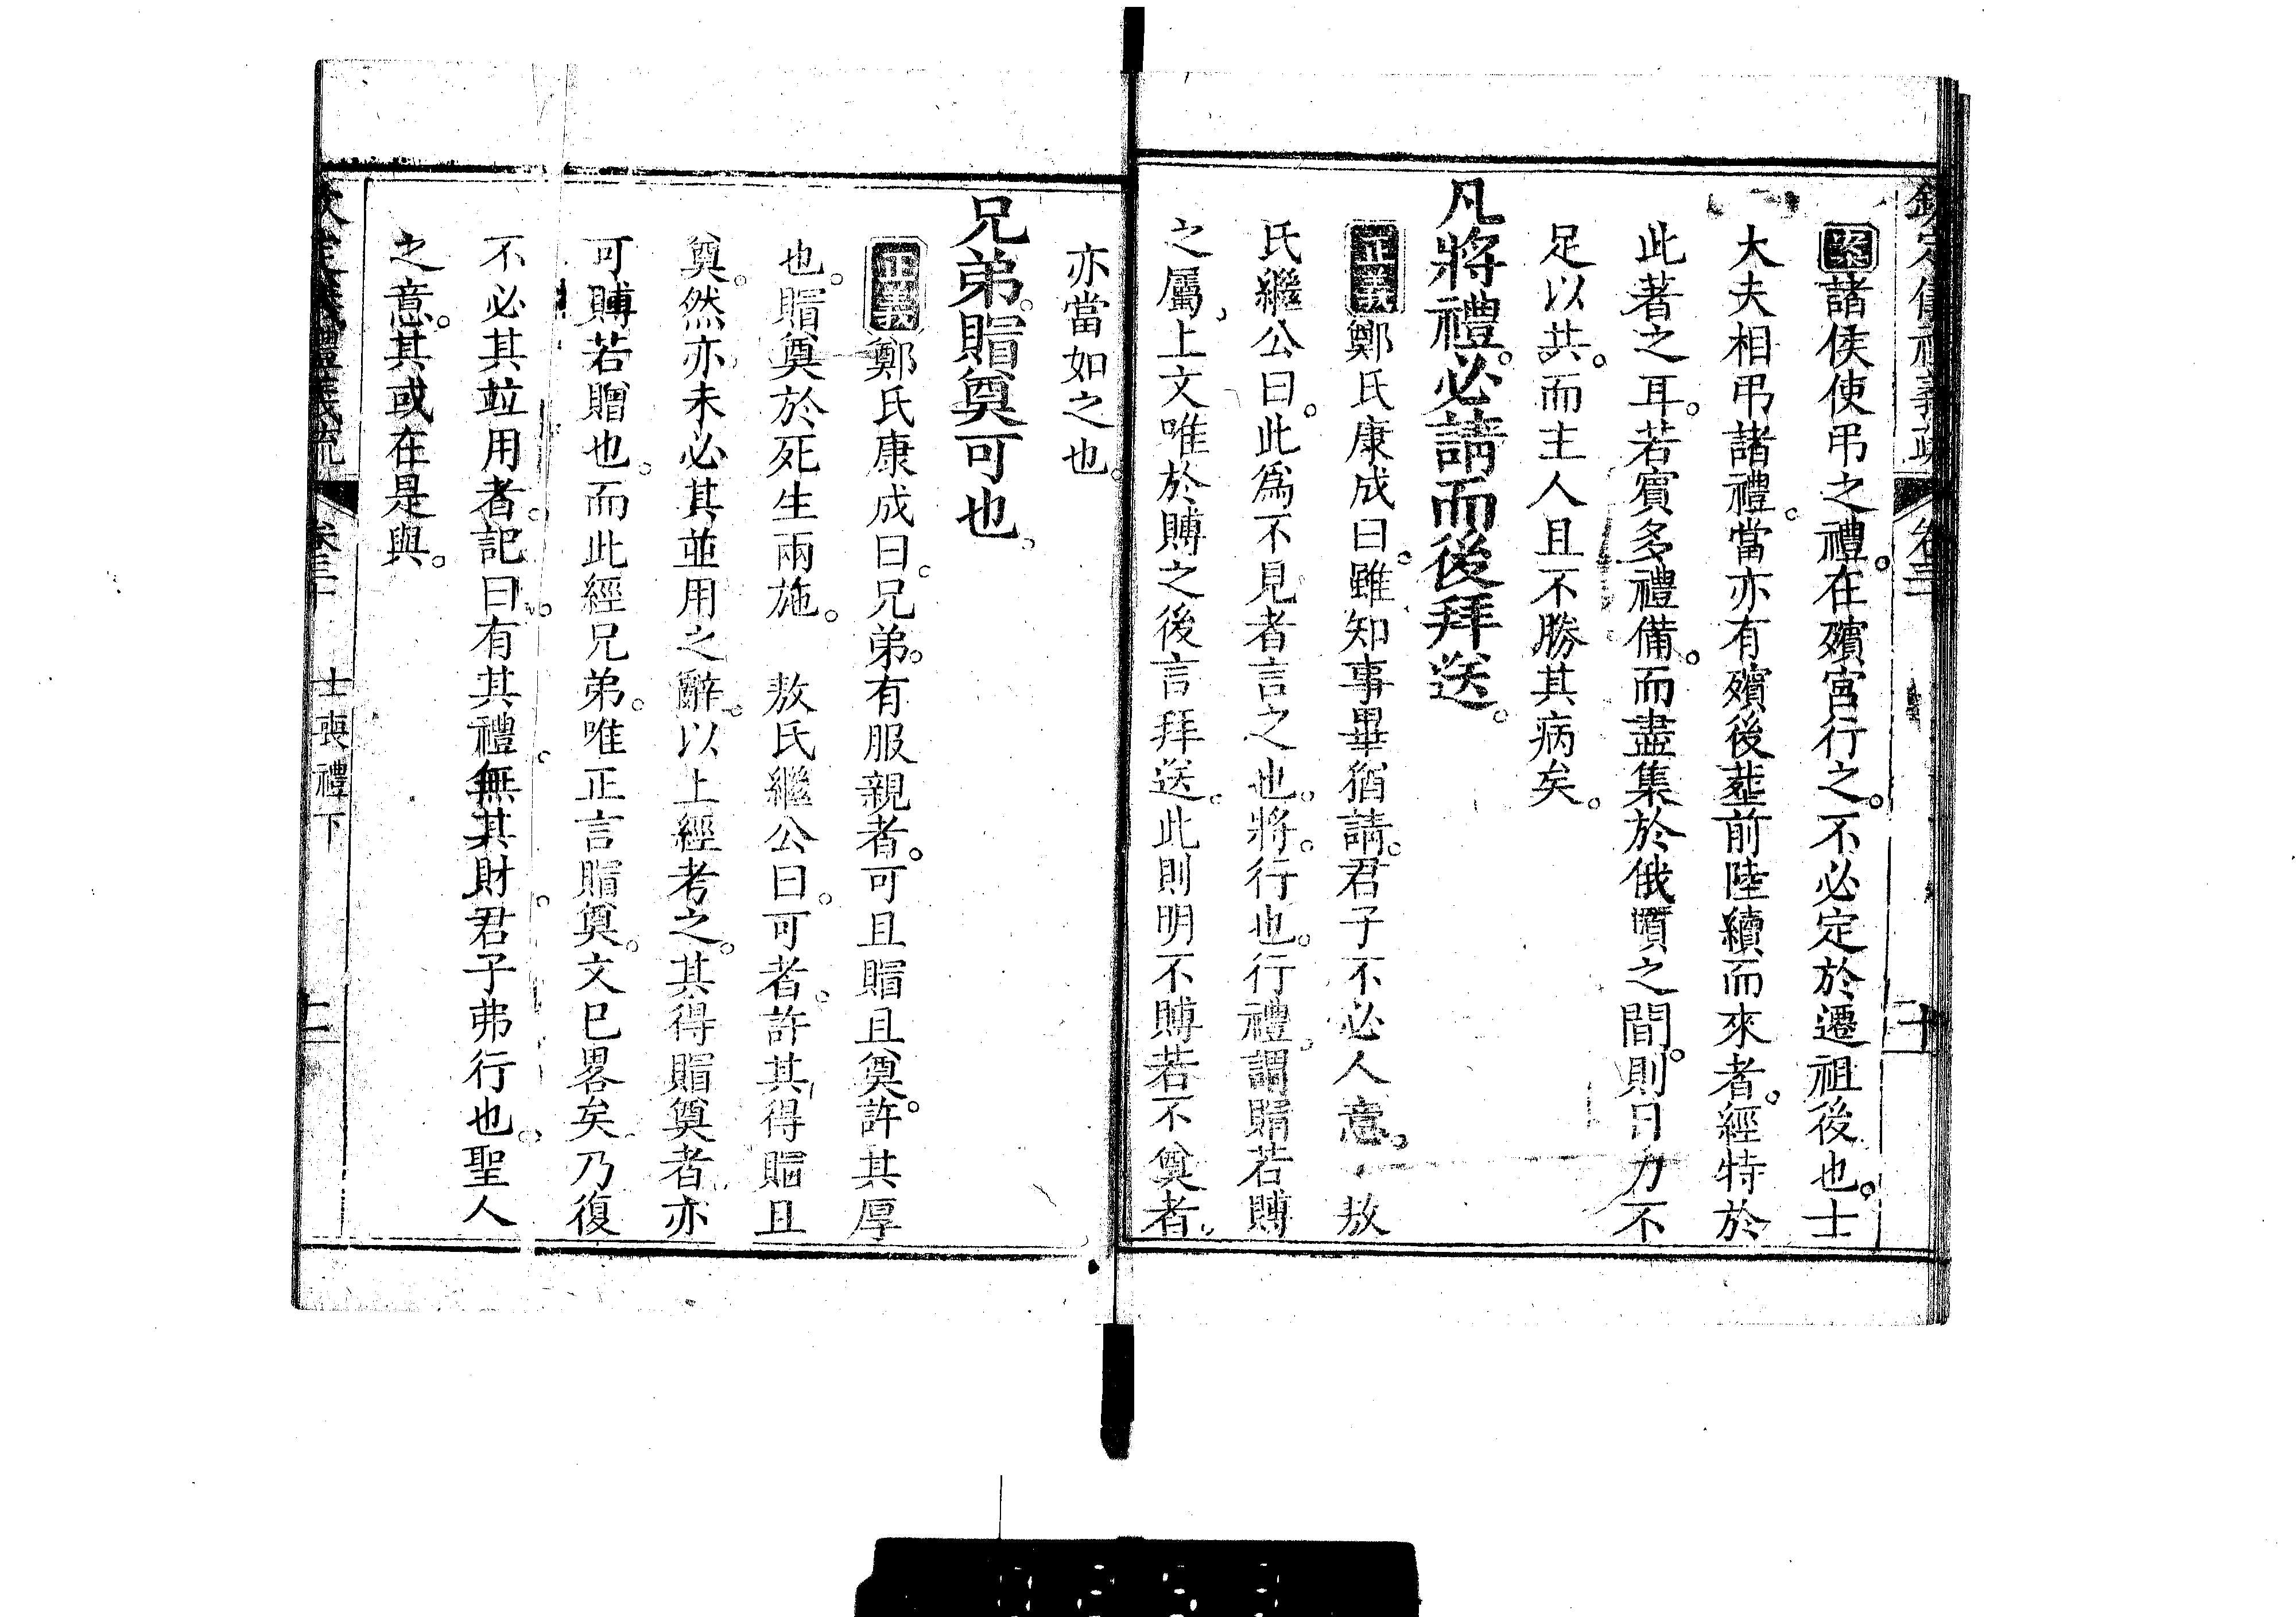 欽定儀禮義疏 卷三十 二十
案諸侯使弔之禮。在殯宮行之。不必定於遷祖後也。士
大夫相弔諸禮。當亦有殯後塟前陸續而來者。經特於
此著之耳。若賓多禮備。而盡集於俄頃之間。則日力不
足以共。而主人且不勝其病矣。
凡將禮。必請而後拜送。
正義鄭氏康成曰。雖知事畢猶請。君子不必人意。 敖
氏繼公曰。此為不見者言之也。將。行也。行禮。謂賵若賻
之屬。上文唯於賻之後言拜送。此則明不賻若不奠者。
亦當如之也。
兄弟。賵奠可也。
正義鄭氏康成曰。兄弟。有服親者。可且賵且奠。許其厚
也。賵奠於死生兩施。 敖氏繼公曰。可者。許其得賵且
奠。然亦未必其並用之辭。以上經考之。其得賵奠者亦
可賻若贈也。而此經兄弟。唯正言賵奠。文已畧矣。乃復
不必其竝用者。記曰。有其禮。無其財。君子弗行也。聖人
之意。其或在是與。
欽定儀禮義疏 卷三十 士喪禮下